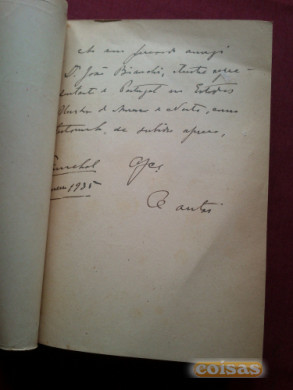 Ao meu prezado amigo
Dr. João Bianchi, ilustre repre-
sentante de Portugal nos Estados
Unidos da America do Norte, como
testemunho de subido apreço,
Funchal
1935
Ofce
O autor
coisas